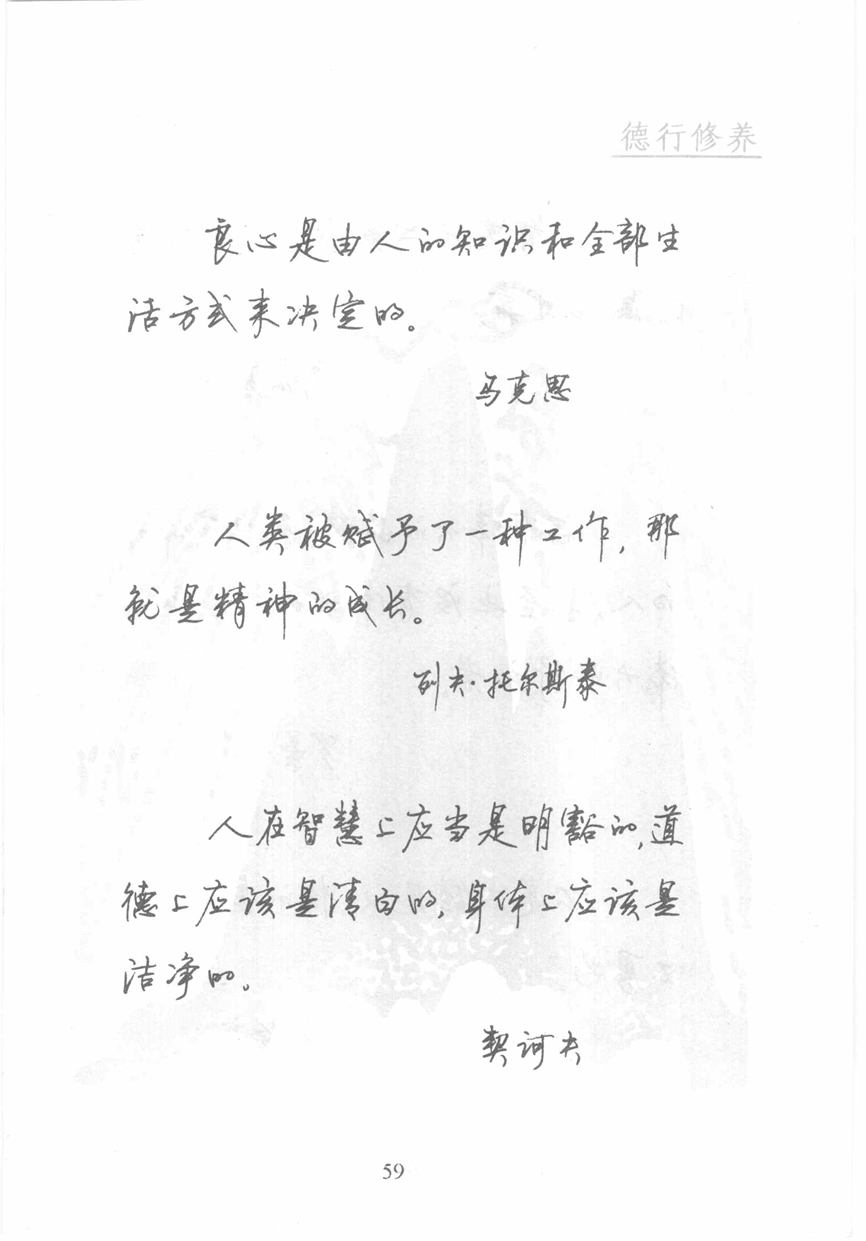 德行修养
良心是由人的知识和全部生
活方式来决定的。
马克思
人类被赋予了一种工作，那
就是精神的成长。
列夫·托尔斯泰
人在智慧上应当是明豁的，道
德上应该是清白的，身体上应该是
洁净的。
契诃夫
59